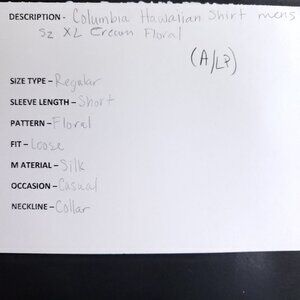 DESCRIPTION - Columbia Hawaiian Shirt mens
Sz XL Cream Floral
(A/L2)
SIZE TYPE – Regular
SLEEVE LENGTH – Short
PATTERN – Floral
FIT – Loose
MATERIAL – Silk
OCCASION – Casual
NECKLINE – Collar